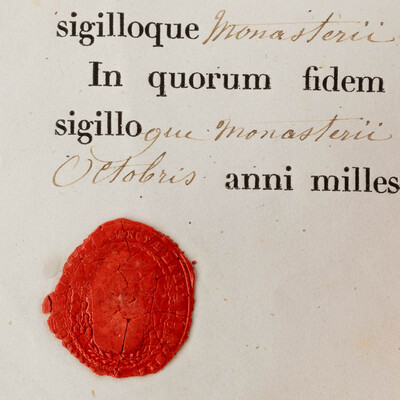 sigilloque Monasterii
In quorum fidem
sigilloque Monasterii
Octobris anni milles